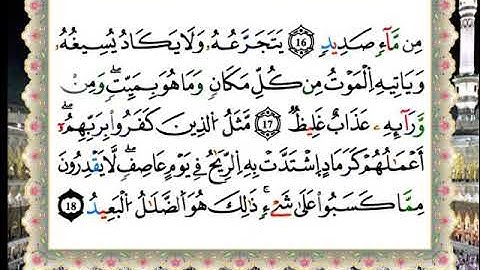 مِن مَّآءٖ صَدِيدٖ 16 يَتَجَرَّعُهُۥ وَلَا يَكَادُ يُسِيغُهُۥ
وَيَاتِيهِ اِ۬لْمَوْتُ مِن كُلِّ مَكَانٖ وَمَا هُوَ بِمَيِّتٖۖ وَمِنْ
وَّرَآئِهِۦ عَذَابٌ غَلِيظٞ 17 مَّثَلُ اُ۬لذِينَ كَفَرُواْ بِرَبِّهِمُۥٓۖ
أَعْمَٰلُهُمْ كَرَمَادٍ اِ۪شْتَدَّتْ بِهِ اِ۬لرِّيَٰحُ فِے يَوْمٍ عَاصِفٖۖ لَّا يَقْدِرُونَ
مِمَّا كَسَبُواْ عَلَىٰ شَےْءٖۖ ذَٰلِكَ هُوَ اَ۬لضَّلَٰلُ اُ۬لْبَعِيدُۖ 18